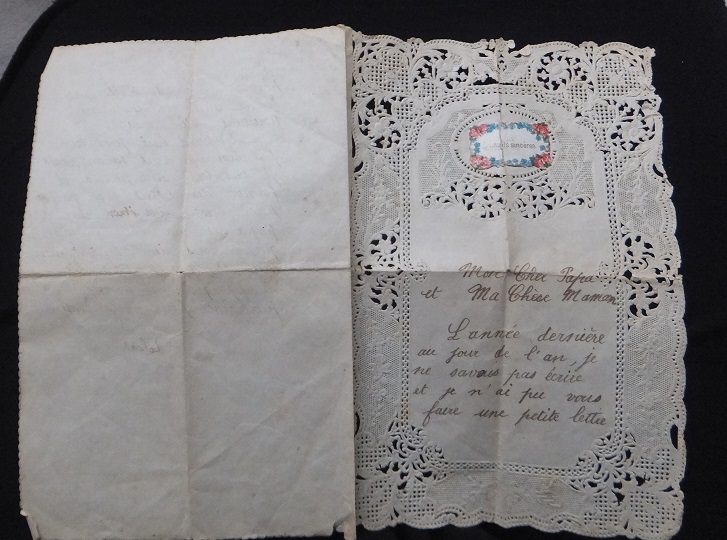 Mon Cher Papa
et Ma Chère Maman
L'année dernière
au jour de l'an, je
ne savais pas écrire
et je n'ai pu vous
faire une petite lettre